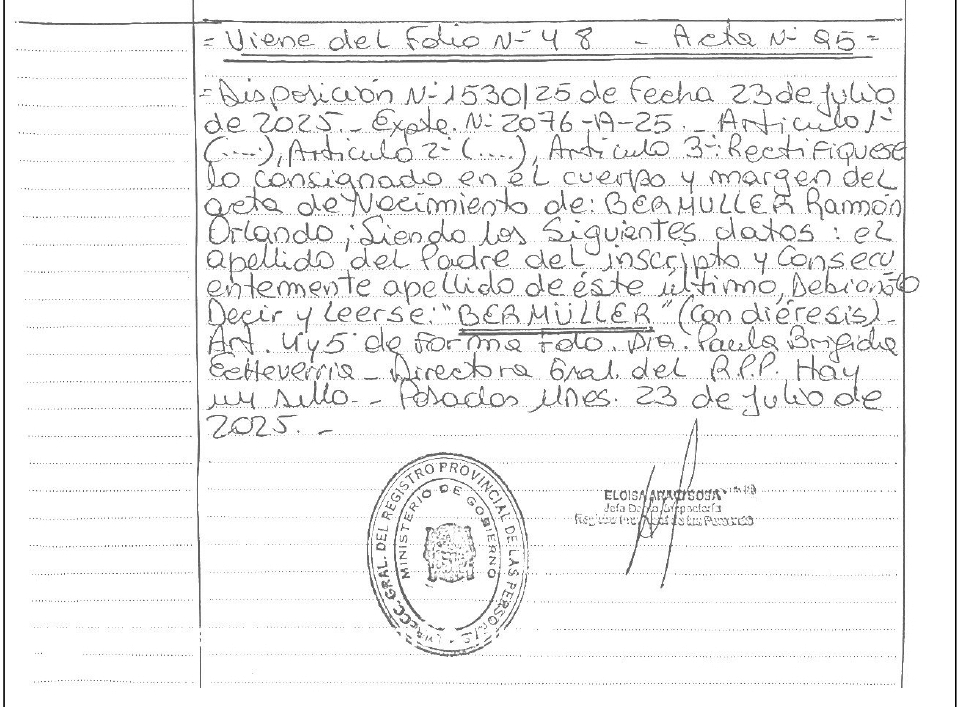 = Viene del Folio N- 48 - Acta N- 95 =
= Disposición N- 1530/25 de Fecha 23 de Julio
de 2025.- Expte. N- 2076-A-25.- Articulo 1-
(....), Articulo 2- (....), Articulo 3-: Rectifiquese
lo consignado en el cuerpo y margen del
acta de Nacimiento de: BERMULLER Ramón
Orlando; Siendo los Siguientes datos: el
apellido del Padre del inscripto y Consecu
entemente apellido de éste ultimo, Debiendo
Decir y Leerse: "BERMÜLLER" (Con diéresis).-
Art. 4 y 5 de Forma Fdo. Dra. Paula Brigida
Echeverria - Directora Gral. del R.P.P. Hay
un sello.- Posadas Mnes. 23 de Julio de
2025.-
DIRECC. GRAL. DEL REGISTRO PROVINCIAL DE LAS PERSONAS
MINISTERIO DE GOBIERNO
ELOISA
Jefa